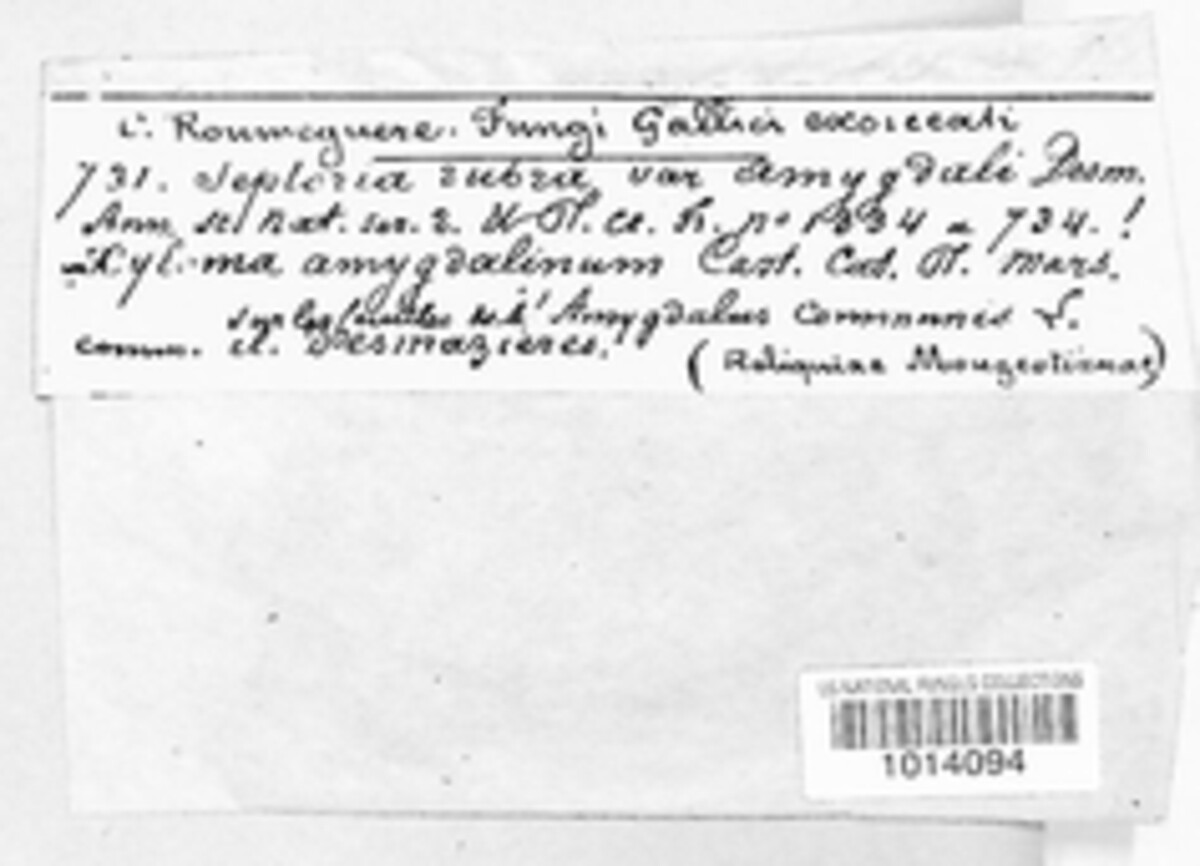 C. Roumeguere. Fungi Gallici exsiccati
731. Septoria rubra var amygdali Desm.
Ann. sc. nat. ser. 2. Pl. cr. Fr. no 1334 734. !
Xyl.-ma amygdalinum Cast. Cat. Pl. Mars.
sur les feuilles de l'Amygdalus Communis L.
comm. Desmazieres.
(Reliquiae Mougeotianae)
US NATIONAL FUNGUS COLLECTIONS
1014094